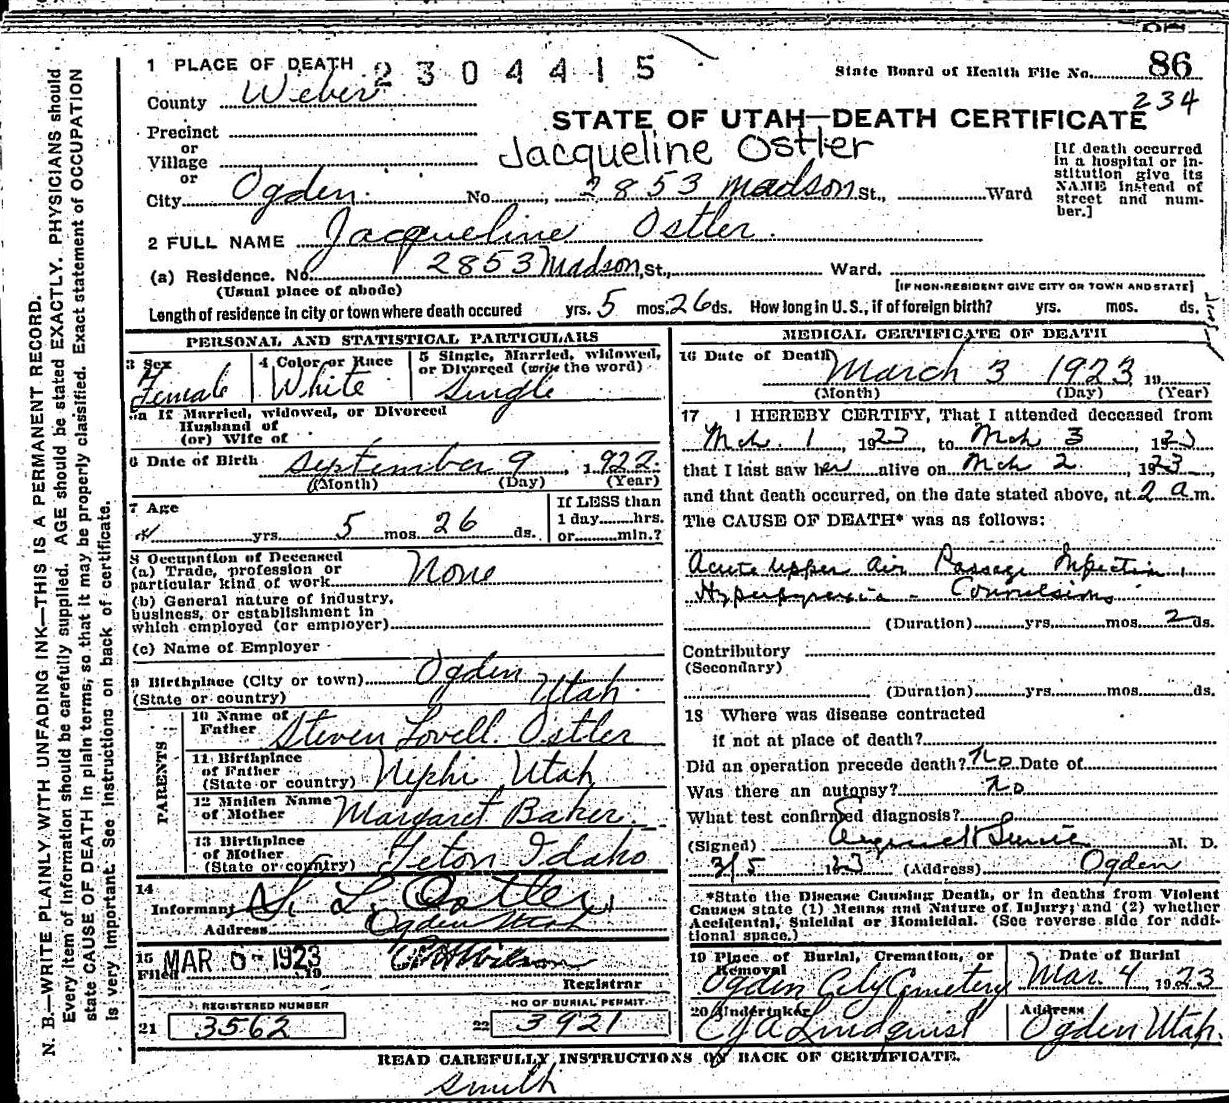 1 PLACE OF DEATH 2304415
State Board of Health File No. 86
234
County Weber
STATE OF UTAH—DEATH CERTIFICATE
Precinct
or
Village
or
Jacqueline Ostler
[If death occurred
in a hospital or in-
stitution give its
NAME instead of
street and num-
ber.]
City Ogden No. 2853 Madson St., Ward
2 FULL NAME Jacqueline Ostler
(a) Residence. No. 2853 Madson, St., Ward.
(Usual place of abode) [IF NON-RESIDENT GIVE CITY OR TOWN AND STATE]
Length of residence in city or town where death occured yrs. 5 mos. 26 ds. How long in U.S., if of foreign birth? yrs. mos. ds.
PERSONAL AND STATISTICAL PARTICULARS
3 Sex Female
4 Color or Race White
5 Single, Married, widowed,
or Divorced (write the word)
Single
5a If Married, widowed, or Divorced
Husband of
(or) Wife of
6 Date of Birth September 9, 1922
(Month) (Day) (Year)
7 Age
yrs. 5 mos. 26 ds.
If LESS than
1 day......hrs.
or......min.?
8 Occupation of Deceased
(a) Trade, profession or
particular kind of work None
(b) General nature of industry,
business, or establishment in
which employed (or employer)
(c) Name of Employer
9 Birthplace (City or town) Ogden
(State or country) Utah
PARENTS
10 Name of
Father Steven Lovell Ostler
11 Birthplace
of Father
(State or country) Nephi Utah
12 Maiden Name
of Mother Margaret Baker
13 Birthplace
of Mother
(State or country) Teton Idaho
14
Informant S. L. Ostler
Address Ogden Utah
15
Filed MAR 1923 19
Wilson
Registrar
REGISTERED NUMBER
21 3562
NO OF BURIAL PERMIT
22 3921
MEDICAL CERTIFICATE OF DEATH
16 Date of Death
March 3 1923 19
(Month) (Day) (Year)
17 I HEREBY CERTIFY, That I attended deceased from
Mch. 1, 1923 to Mch 3 1923
that I last saw her alive on Mch 2, 1923,
and that death occurred, on the date stated above, at 2 a.m.
The CAUSE OF DEATH* was as follows:
Acute upper air Passage Infection,
Hyperpyrexia - Convulsions
(Duration) yrs. mos. 2 ds.
Contributory
(Secondary)
(Duration) yrs. mos. ds.
18 Where was disease contracted
if not at place of death?
Did an operation precede death? No Date of
Was there an autopsy? No
What test confirmed diagnosis?
(Signed) M. D.
3/5 1923 (Address) Ogden
*State the Disease Causing Death, or in deaths from Violent
Causes state (1) Means and Nature of Injury; and (2) whether
Accidental, Suicidal or Homicidal. (See reverse side for addi-
tional space.)
19 Place of Burial, Cremation, or
Removal
Ogden City Cemetery
Date of Burial
Mar. 4 1923
20 Undertaker
Lindquist
Address
Ogden Utah.
READ CAREFULLY INSTRUCTIONS ON BACK OF CERTIFICATE.
Smith
N. B.—WRITE PLAINLY WITH UNFADING INK—THIS IS A PERMANENT RECORD.
Every item of information should be carefully supplied. AGE should be stated EXACTLY. PHYSICIANS should
state CAUSE OF DEATH in plain terms, so that it may be properly classified. Exact statement of OCCUPATION
is very important. See instructions on back of certificate.